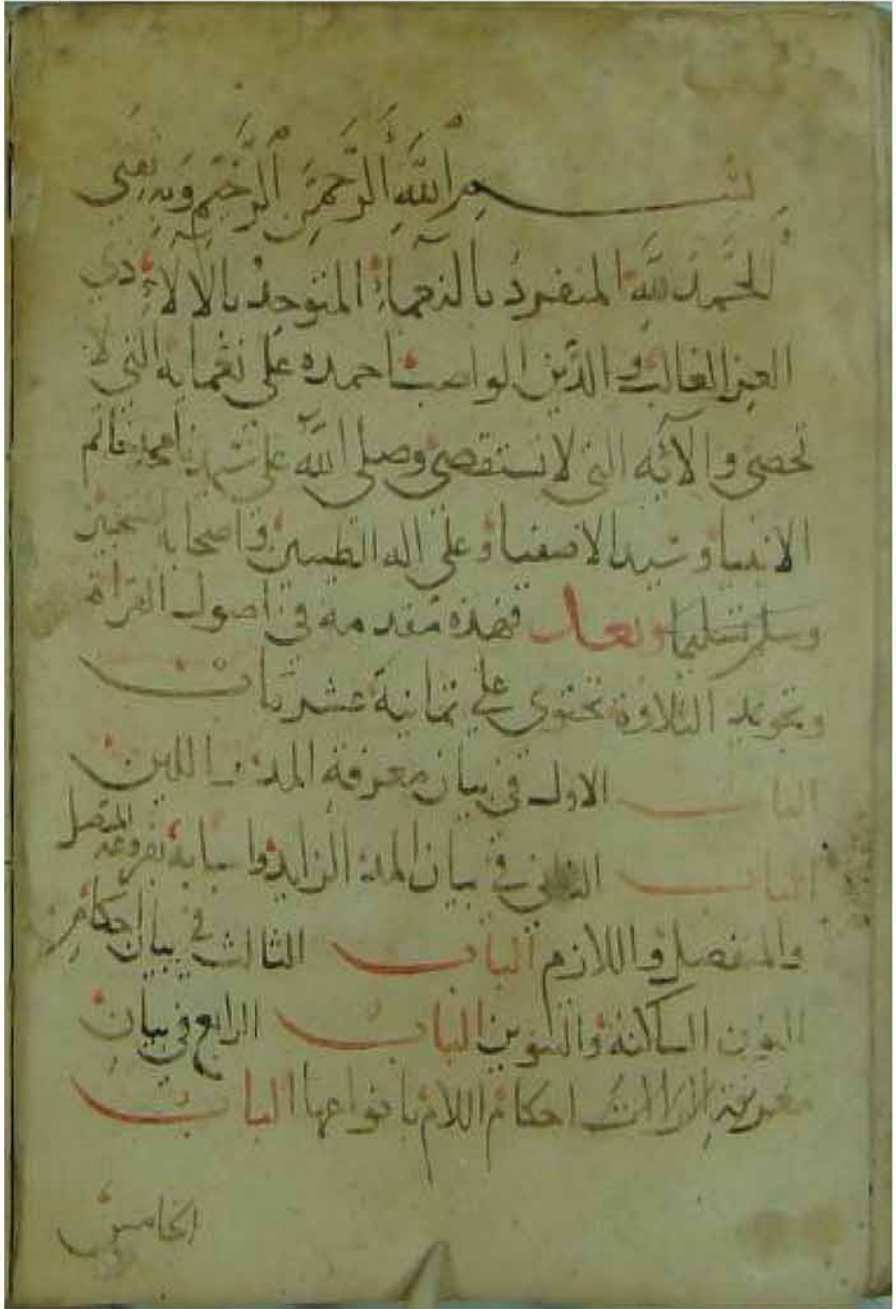 بسم الله الرحمن الرحيم وبه ثقتي
الحمد لله المنفرد بالنعماء المتوحد بالآلاء ذي
العز الغالب والدين الواصب احمده على نعمايه التي لا
تحصى وآلائه التي لا تستقصى وصلى الله على سيدنا محمد خاتم
الانبيا وسيد الاصفيا وعلى اله الطيبين واصحابه
وسلم تسليما وبعد فهذه مقدمة في اصول القراة
وتجويد التلاوة تحتوي على ثمانية عشر باب
الباب الاول في بيان معرفة المد واللين
الباب الثاني في بيان المد الزايد واسبابه المتصل
والمنفصل واللازم الباب الثالث في بيان احكام
النون الساكنة والتنوين الباب الرابع في بيان
معرفة احكام اللام بانواعها الباب
الخامس